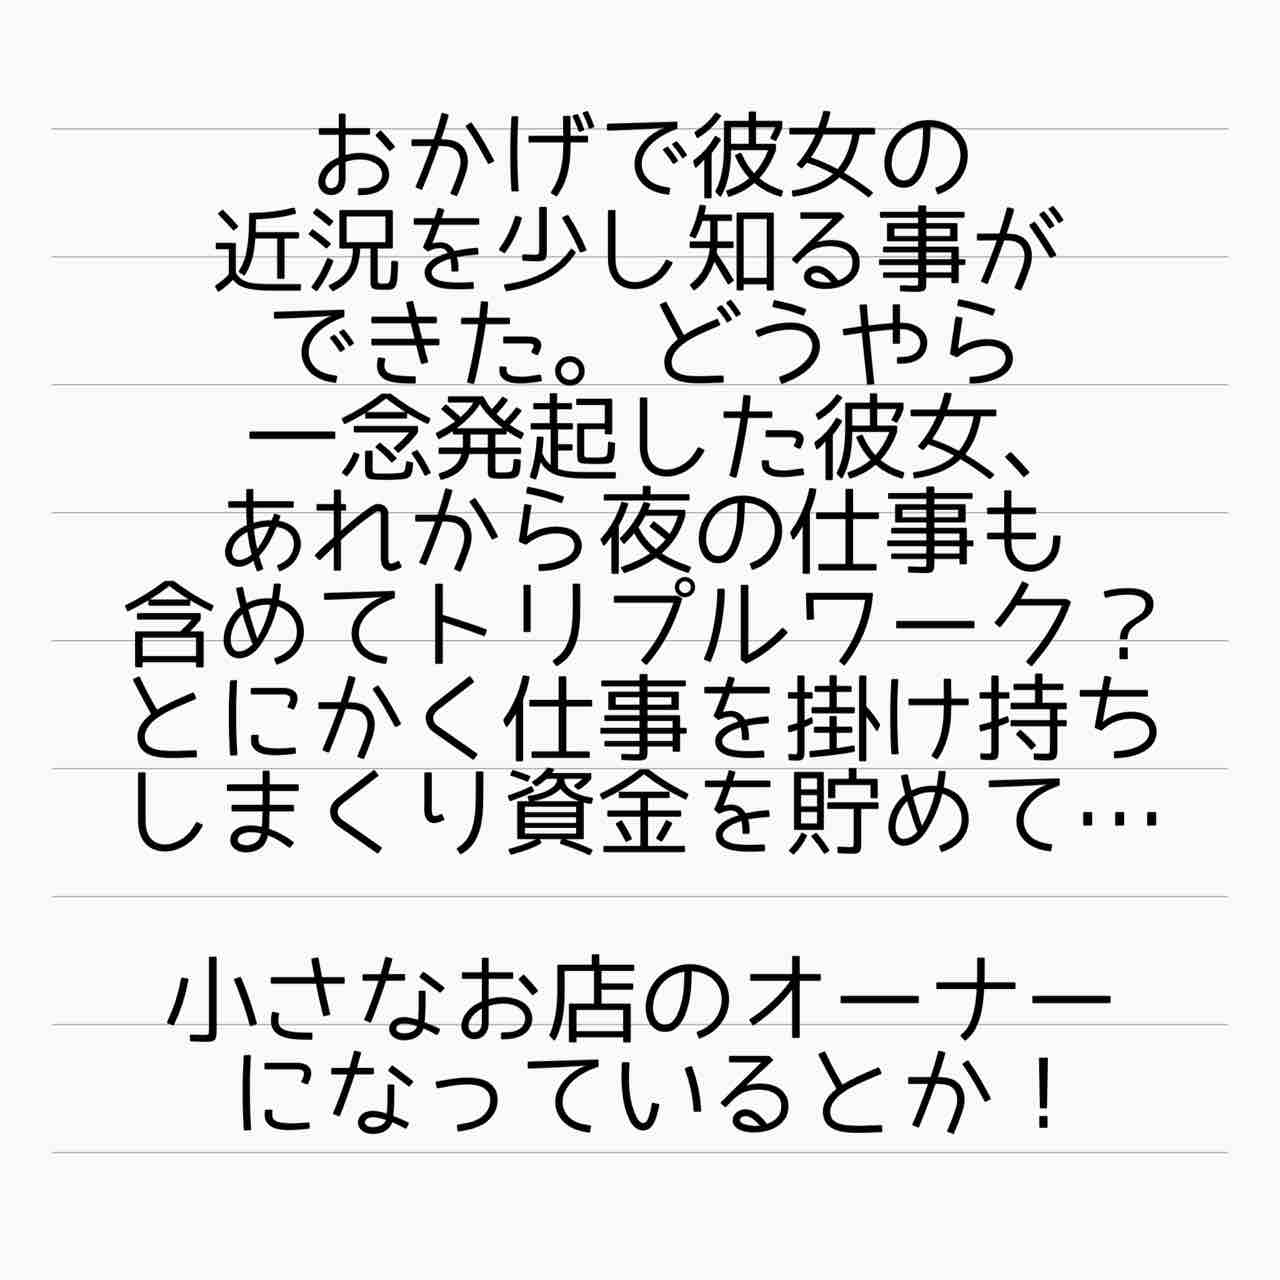 おかげで彼女の
近況を少し知る事が
できた。どうやら
一念発起した彼女、
あれから夜の仕事も
含めてトリプルワーク？
とにかく仕事を掛け持ち
しまくり資金を貯めて…
小さなお店のオーナー
になっているとか！